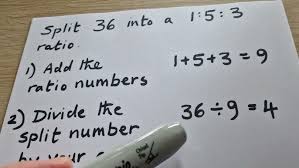 Split 36 into a 1:5:3
ratio.
1) Add the
ratio numbers
1+5+3=9
2) Divide the
split number
36÷9=4
by your